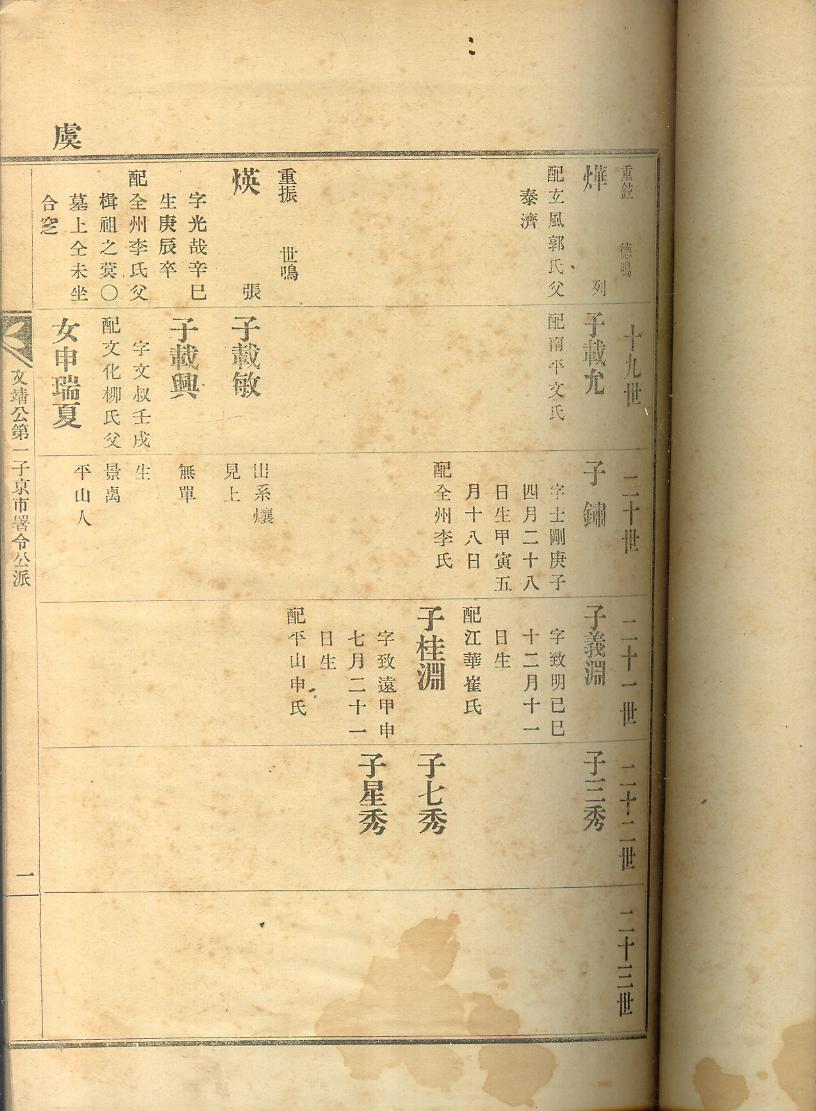 虞
重鉉 德鳴
燁 列
配玄風郭氏父
泰濟
重振 世鳴
煐 張
字光哉辛巳
生庚辰卒
配全州李氏父
楫祖之蓂〇
墓上仝未坐
合窆
十九世
子載允
配南平文氏
子載敏
子載興
字文叔壬戌
配文化柳氏父
女申瑞夏
二十世
子 鏽
字士剛庚子
四月二十八
日生甲寅五
月十八日
配全州李氏
出系爙
見上
無單
生
景禼
平山人
二十一世
子義淵
字致明己巳
十二月十一
日生
配江華崔氏
子桂淵
字致遠甲申
七月二十一
日生
配平山申氏
二十二世
子三秀
子七秀
子星秀
二十三世
文靖公第一子京市署令公派
一